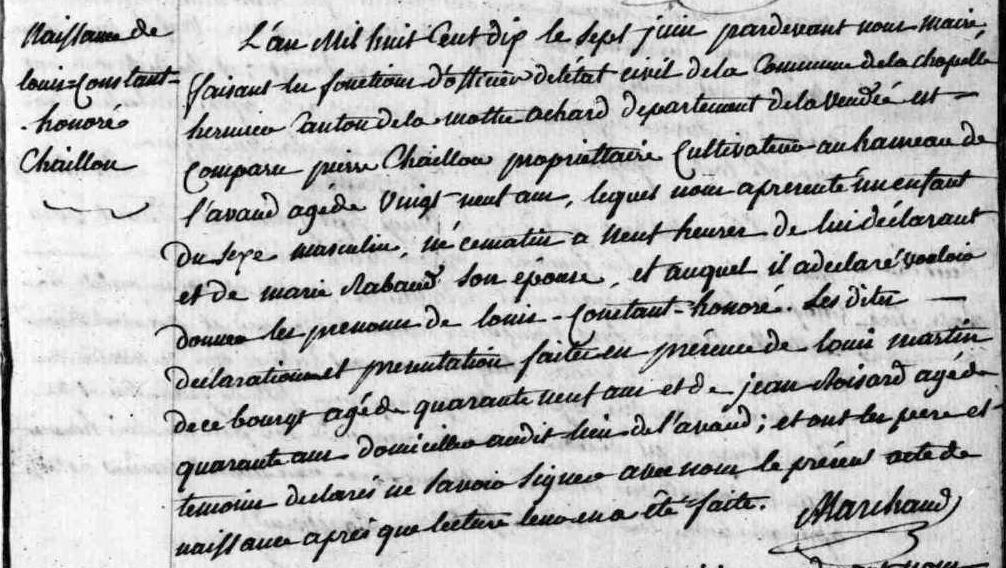 Naissance de
louis-Constant-
honoré
Chaillou
L'an Mil huit Cent dix le sept juin pardevant nous maire
faisant les fonctions d'officier de l'état civil de la Commune de la chapelle
hermier Canton de la mothe achard département de la vendée est
Comparu pierre Chaillou propriettaire Cultivateur au hameau de
l'avaud agé de Vingt neuf ans, lequel nous a presenté un enfant
du sexe masculin, né ce matin a neuf heures de lui déclarant
et de marie Rabaud son epouse, et auquel il a declaré vouloir
donner les prenoms de louis-Constant-honoré. Les dites
déclaration et presentation faites en présence de louis martin
de ce bourgt agé de quarante neuf ans et de jean Roisard agé de
quarante ans domiciliés audit lieu de l'avaud; et ont les pere et
temoins declarés ne savoir signer avec nous le présent acte de
naissance après que lecture leur en a été faite. Marchand